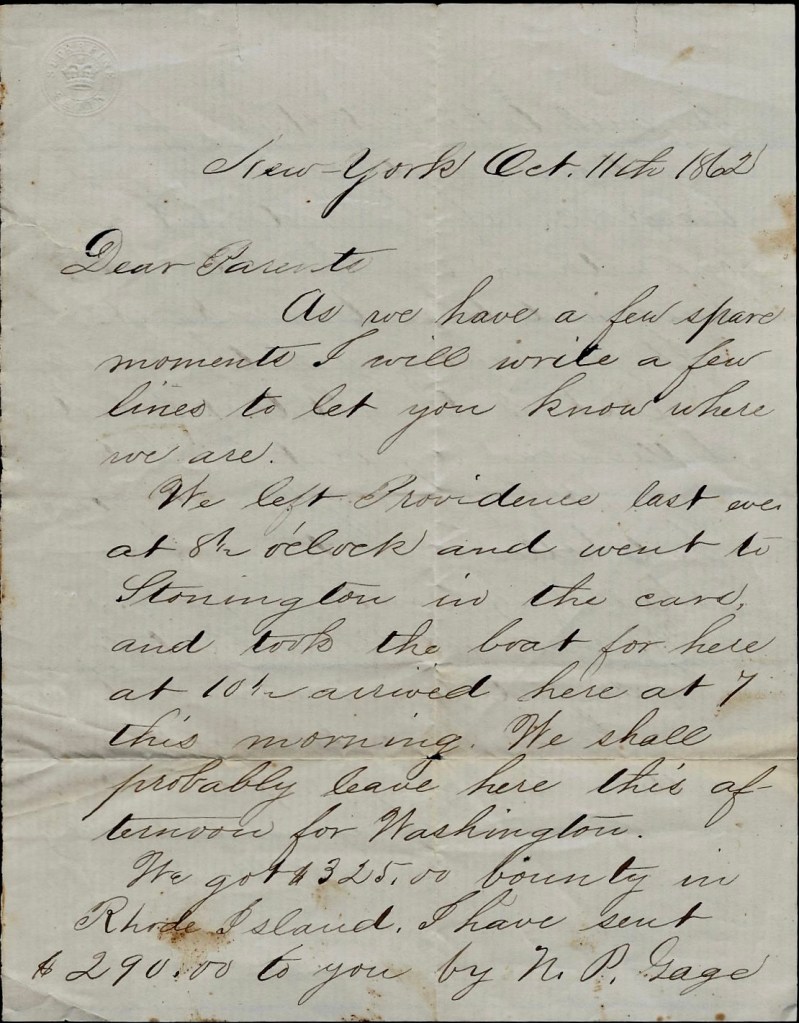 New-York Oct. 11th 1862
Dear Parents
As we have a few spare
moments I will write a few
lines to let you know where
we are.
We left Providence last eve.
at 8½ o'clock and went to
Stonington in the cars,
and took the boat for here
at 10½ arrived here at 7
this morning. We shall
probably leave here this af-
ternoon for Washington.
We got $325.00 bounty in
Rhode Island. I have sent
$290.00 to you by N. P. Gage